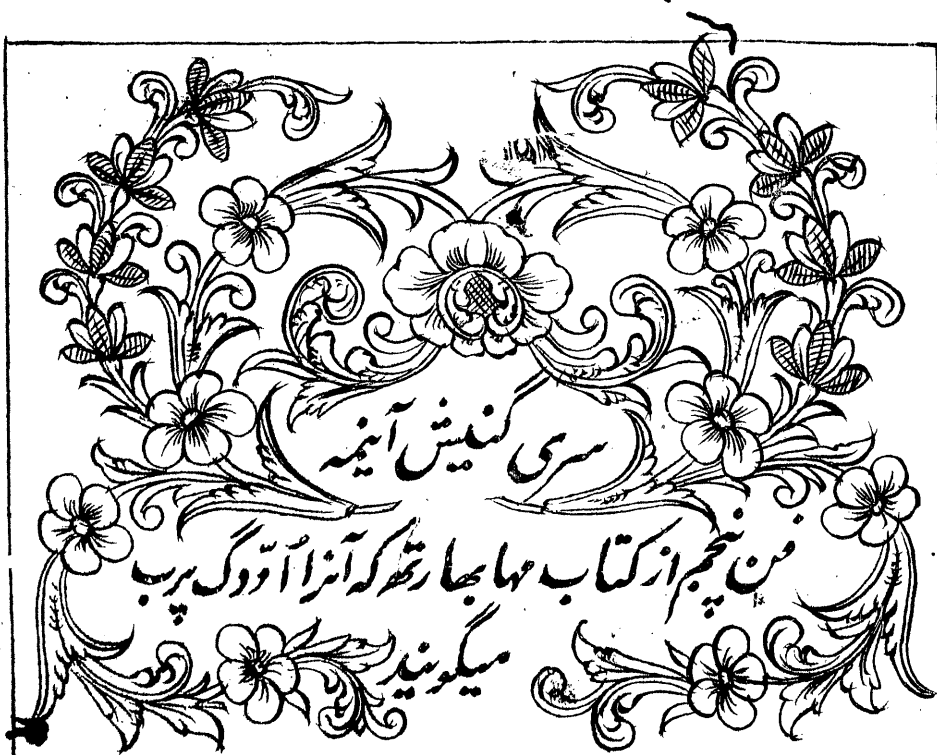 سری گنیش آینمہ
فن پنجم از کتاب مہا بھارتھ کہ آنرا اُدّوگ پرب
میگویند